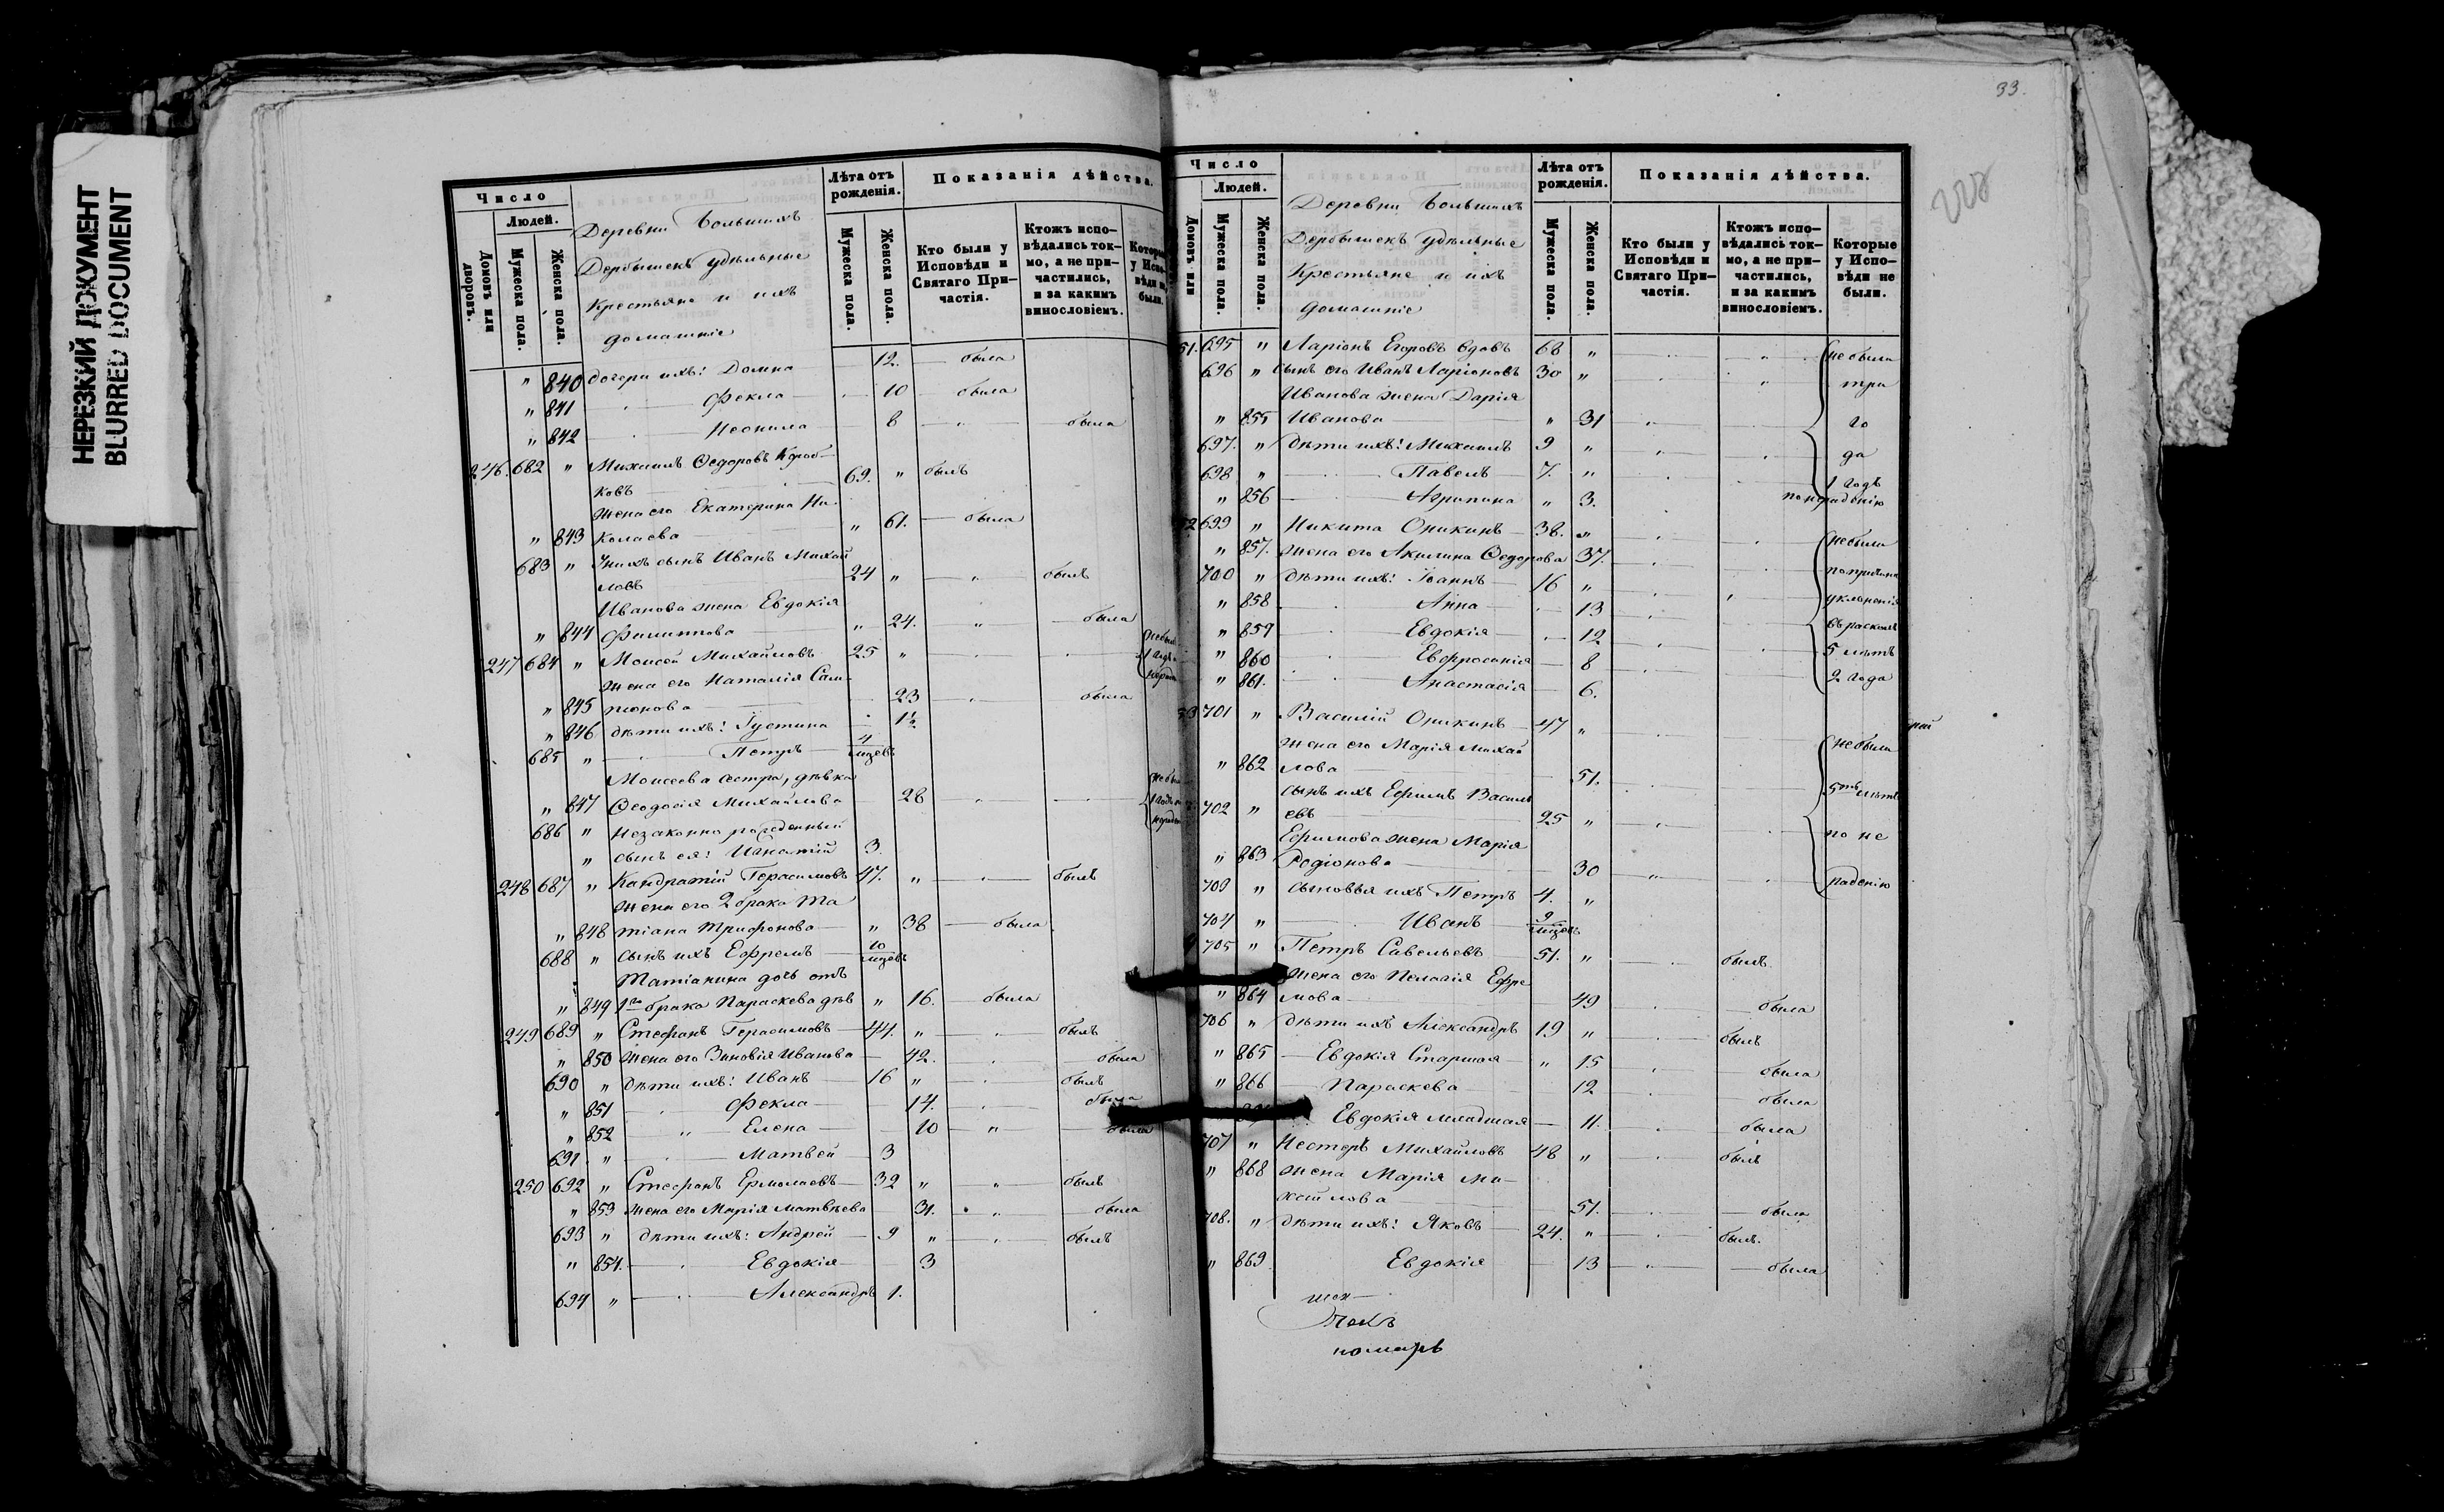 НЕРЕЗКИЙ ДОКУМЕНТ
BLURRED DOCUMENT
Число
Людей.
Домовъ или дворовъ.
Мужеска пола.
Женска пола.
Деревни Большихъ
Дербышекъ удѣльные
Крестьяне и ихъ
домашніе
Лѣта отъ рожденія.
Мужеска пола.
Женска пола.
Показанія дѣйства.
Кто были у Исповѣди и Святаго Причастія.
Ктожъ исповѣдались токмо, а не причастились, и за какимъ винословіемъ.
Которые у Исповѣди не были.
" 840 дочери ихъ: Домна 12. была
" 841 Фекла 10 была
" 842 Неонила 8 " была
246. 682 " Михаилъ Ѳедоровъ
ковъ 69. " былъ
жена его Екатерина Ни-
" 843 колаева " 61. была
683 " У нихъ сынъ Иванъ Михай
ловъ 24 " " былъ
Иванова жена Евдокія
" 844 Филиппова " 24. " была
247 684 " Моисей Михайловъ 25 "
жена его Наталія Сам-
" 845 сонова 23 была
" 846 дѣти ихъ: Іустина 1½
685 " Петръ 4 мцевъ
Моисеева сестра, дѣвка
" 847 Ѳеодосія Михайлова 28 "
686 " Незаконно рожденный
" сынъ ея: Игнатій 3.
248 687 " Кандратій Герасимовъ 47. " былъ
жена его 2 брака Та
" 848 тіана Трифонова " 38 была
688 " сынъ ихъ Ефремъ 10 мцевъ
Татіанина дочь отъ
" 849 1го брака Параскева дѣв " 16. была
249 689 " Стефанъ Герасимовъ 44. " былъ
" 850 жена его Зиновія Иванова 42. была
690 " дѣти ихъ: Иванъ 16 " былъ
" 851 Фекла 14. была
" 852 " Елена 10 " была
691 " Матвей 3
250 692 " Стефанъ Ермолаевъ 32 " " былъ
" 853 жена его Марія Матвѣева 31. " была
693 " дѣти ихъ: Андрей 9 " былъ
" 854. Евдокія 3
694 " Александръ 1.
33.
Число
Людей.
Домовъ или
Мужеска пола.
Женска пола.
Деревни Большихъ
Дербышекъ удѣльные
Крестьяне и ихъ
домашніе
Лѣта отъ рожденія.
Мужеска пола.
Женска пола.
Показанія дѣйства.
Кто были у Исповѣди и Святаго Причастія.
Ктожъ исповѣдались токмо, а не причастились, и за какимъ винословіемъ.
Которые у Исповѣди не были.
51. 695 " Ларіонъ Егоровъ вдовъ 68 " " не были
696 " сынъ его Иванъ Ларіоновъ 30 " " три
Иванова жена Дарія
" 855 Иванова " 31 " го
697. " дѣти ихъ: Михаилъ 9 " " да
698 " Павелъ 7. " 1 годъ
" 856 Агрипина " 3. по нерадѣнію
52 699 " Никита Оникинъ 38. " не были
" 857. жена его Акилина Ѳедорова 37. по причинѣ
700 " дѣти ихъ: Іоаннъ 16 " уклоненія
" 858 Анна 13 въ расколъ
" 859 Евдокія 12 5 лѣтъ
" 860 Евфросинія 8 2 года
" 861. Анастасія 6.
53 701 " Василій Оникинъ 47 " не были
жена его Марія Михай
" 862 лова 51.
сынъ ихъ Ефимъ Василь 5ть лѣтъ
702 " евъ 25 " " по не
Ефимова жена Марія
" 863 Родіонова 30 " радѣнію
703 " сыновья ихъ Петръ 4. "
704 " Иванъ 9 мцевъ
705 " Петръ Савельевъ 51. " былъ
жена его Пелагія Ефре
" 864 мова 49 была
706 " дѣти ихъ Александръ 19 " былъ
" 865 Евдокія Старшая " 15 была
" 866 Параскева 12 была
Евдокія младшая 11. была
707 " Несторъ Михайловъ 48 " былъ
" 868 жена Марія Ми-
хайлова 51. была
708. " дѣти ихъ: Яковъ 24. " былъ.
" 869 Евдокія 13 " была